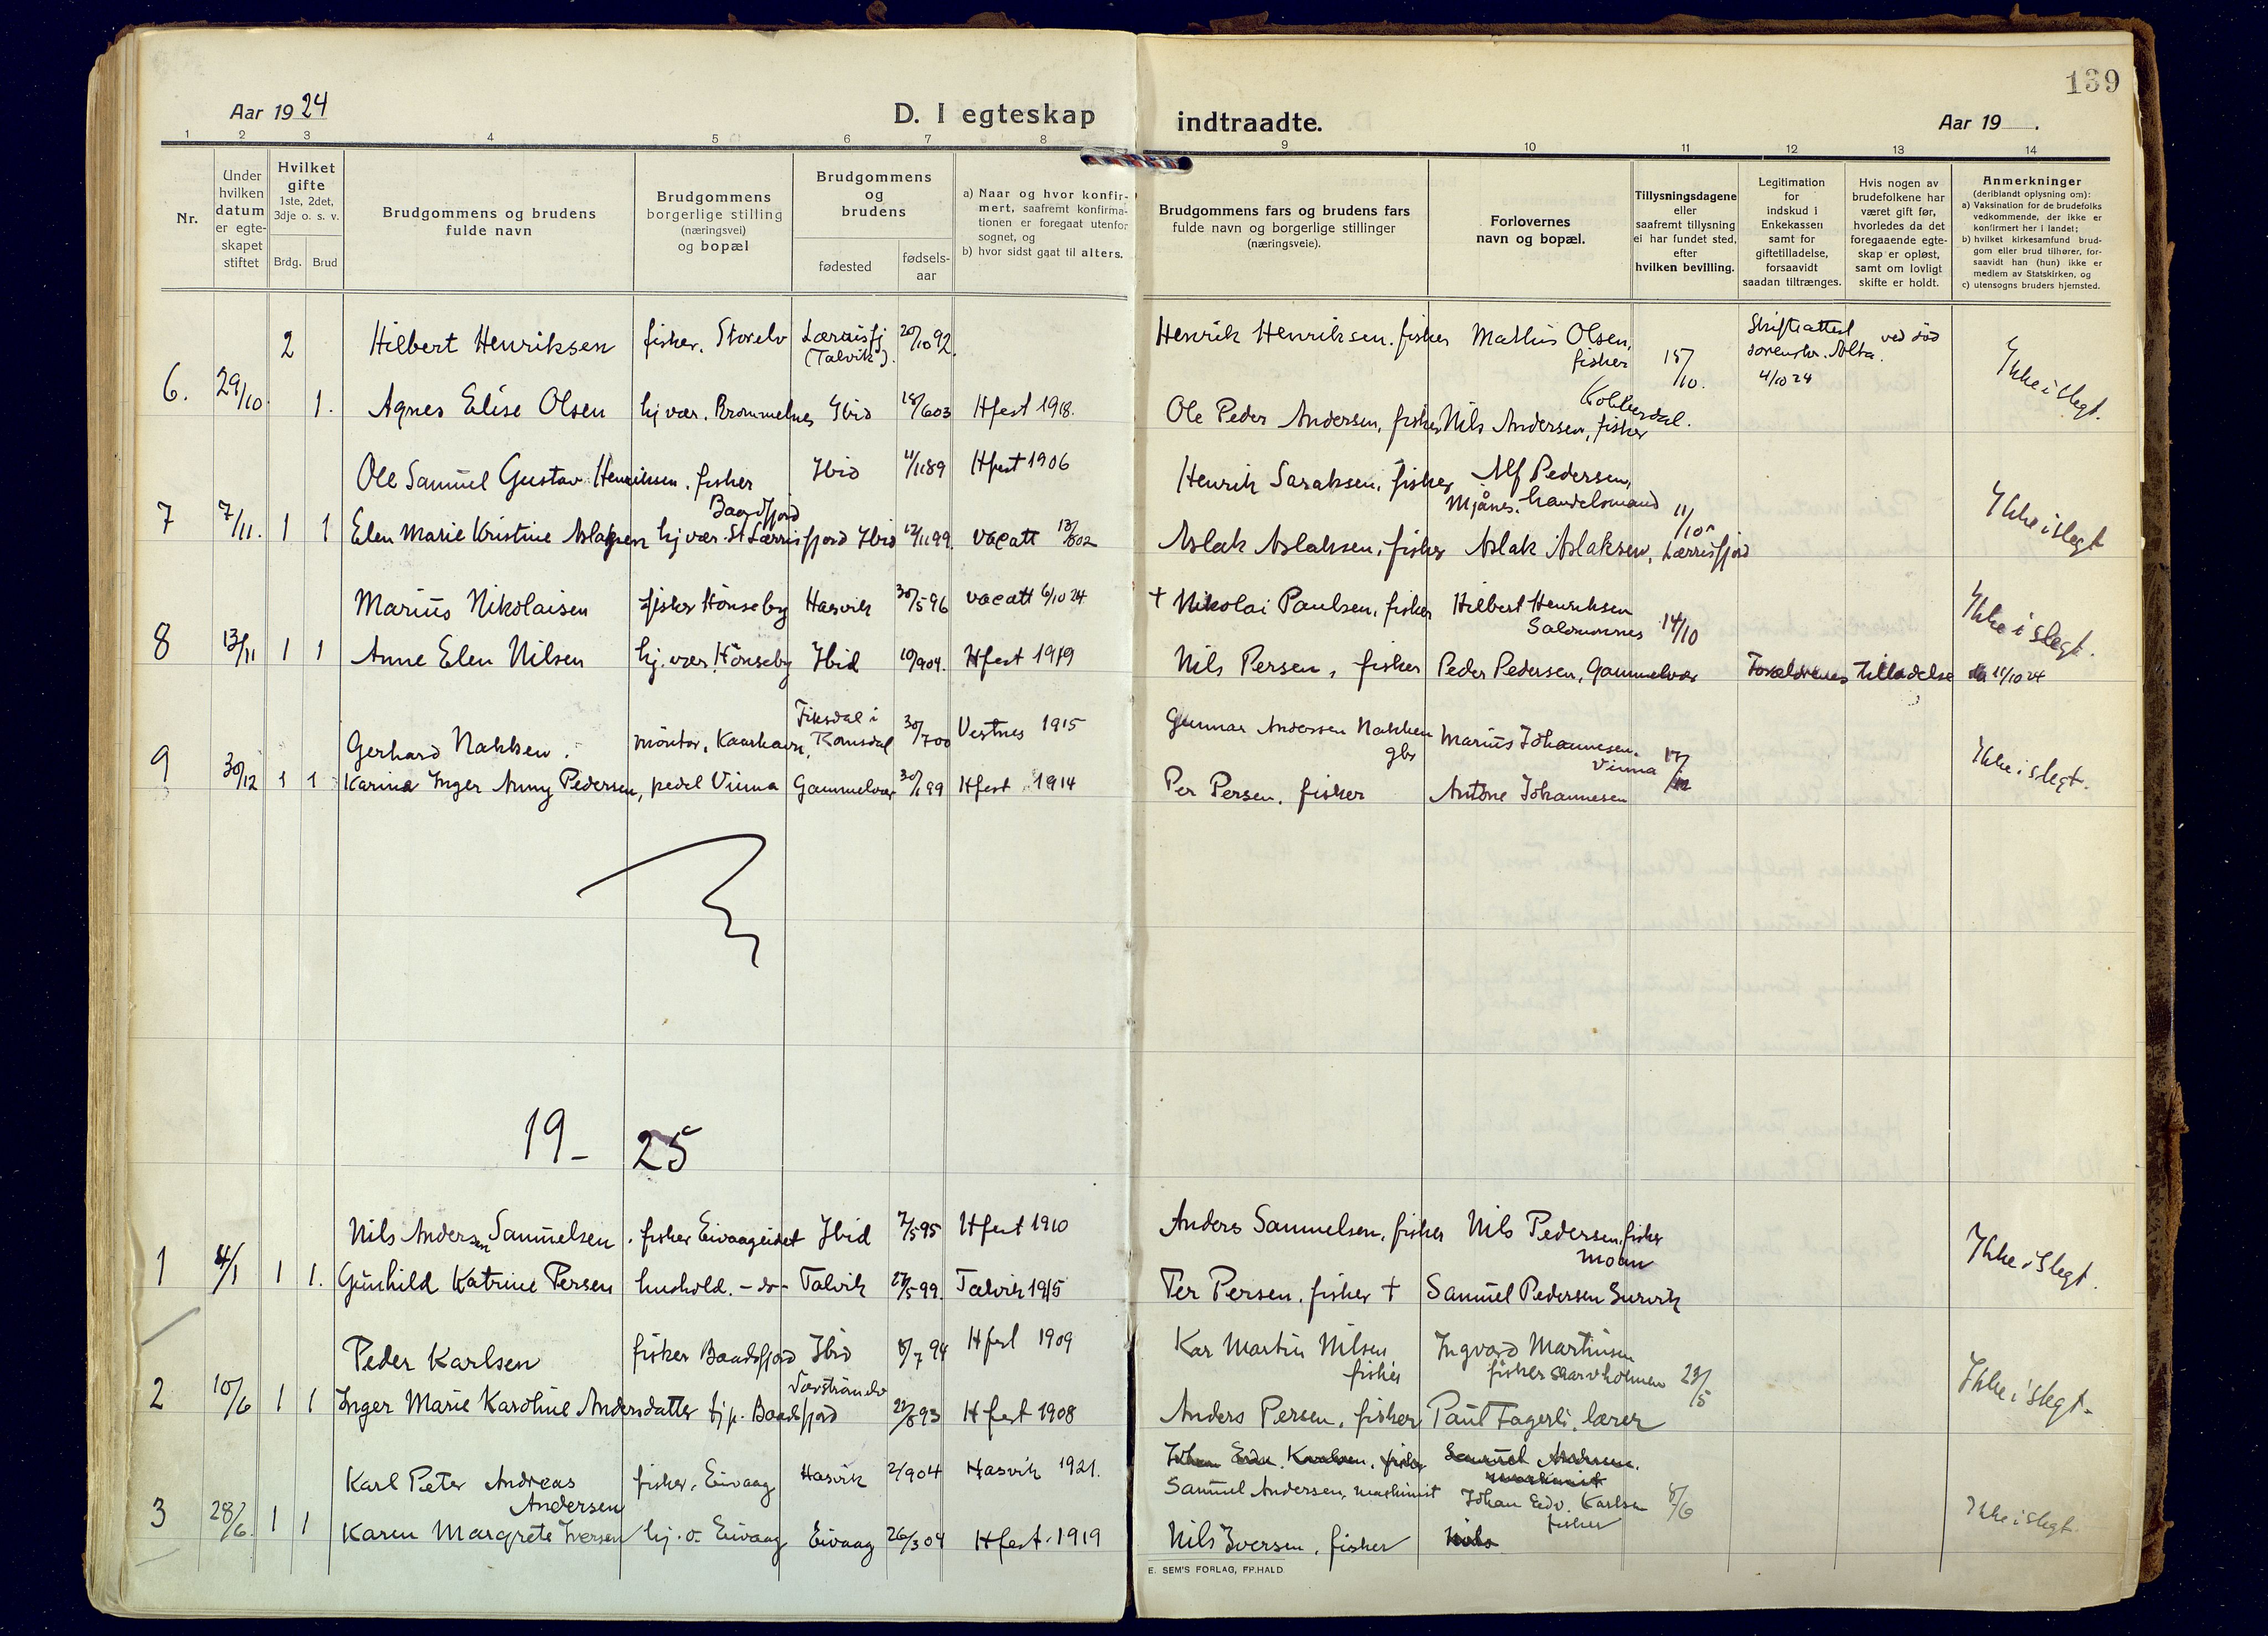 139
Aar 1924
D. I egteskap indtraadte.
Aar 19 .
1 2 3 4 5 6 7 8 9 10 11 12 13 14
Nr.
Under hvilken datum er egte-skapet stiftet
Hvilket gifte
1ste, 2det, 3dje o. s. v.
Brdg. Brud
Brudgommens og brudens fulde navn
Brudgommens borgerlige stilling (næringsvei) og bopæl
Brudgommens og brudens
fødested
fødsels-aar
a) Naar og hvor konfir-mert, saafremt konfirma-tionen er foregaat utenfor sognet, og
b) hvor sidst gaat til alters.
Brudgommens fars og brudens fars fulde navn og borgerlige stillinger (næringsveie).
Forlovernes navn og bopæl.
Tillysningsdagene eller saafremt tillysning ei har fundet sted, efter hvilken bevilling.
Legitimation for indskud i Enkekassen samt for giftetilladelse, forsaavidt saadan tiltrænges.
Hvis nogen av brudefolkene har været gift før, hvorledes da det foregaaende egte-skap er opløst, samt om lovligt skifte er holdt.
Anmerkninger
(deriblandt oplysning om):
a) Vaksination for de brudefolks vedkommende, der ikke er konfirmert her i landet;
b) hvilket kirkesamfund brud-gom eller brud tilhører, for-saavidt han (hun) ikke er medlem av Statskirken, og
c) utensogns bruders hjemsted.
2 Hilbert Henriksen fisker, Storelv Lærrisfj (Talvik). 20/10 92. Henrik Henriksen. fisker Mathis Olsen, fisker 15/10. Skifteattest sorenskr. Alta. 4/10 24 ved død
6. 29/10. 1. Agnes Elise Olsen hj vær. Brommelnes Ibid 18/6 03 Hfest 1918. Ole Peder Andersen, fisker Nils Andersen, fisker Kobberdal. Ikke i slegt.
Ole Samuel Gustav Henriksen. fisker Baadfjord Ibid 4/11 89 Hfest 1906 Henrik Saraksen, fisker Alf Pedersen, Mjånes. handelsmand
7 7/11. 1 1 Elen Marie Kristine Aslaksen hj vær. St Lærrisfjord Ibid 12/11 99. vacatt 13/8 02 Aslak Aslaksen, fisker Aslak Aslaksen, Lærrisfjord 11/10 Ikke i slegt
Marius Nikolaisen fisker Hönseby Hasvik 30/5 96 vacatt 6/10 24 + Nikolai Paulsen, fisker Hilbert Henriksen Salomonnes 14/10
8 13/11 1 1 Anne Elen Nilsen hj. vær. Hönseby Ibid 10/9 04. Hfest 1919 Nils Persen, fisker Peder Pedersen, Gammelvær Forældrenes tilladelse 11/10 24 Ikke i slegt.
Gerhard Nakken. montør, Kaarhavn, Fiksdal i Romsdal 30/7 00 Vestnes 1915 Gunnar Andersen Nakken gbr Marius Johannesen. Vinna
9 30/12 1 1 Karina Inger Anny Pedersen, pedel Vinna Gammelvær 30/1 99 Hfest 1914 Per Persen, fisker Antone Johannesen Ikke i slegt.
19 - 25
Nils Andersen Samuelsen. fisker Eivaageidet Ibid 7/5 95 Hfest 1910 Anders Samuelsen, fisker Nils Pedersen, fisker Moan
1 4/1 1 1. Gunhild Katrine Persen hushold. - do - Talvik 27/5 99. Talvik 1915 Per Persen, fisker + Samuel Pedersen Survik Ikke i slegt.
Peder Karlsen fisker Baadsfjord Ibid 8/7 94 Hfest 1909 Kar Martin Nilsen fisker Ingvard Martinsen fisker Skarvholmen 23/5
2 10/6 1 1 Inger Marie Karoline Andersdatter tjp. Baadsfjord 22/8 93 Hfest 1908 Anders Persen, fisker Paul Fagerli, lærer Ikke i slegt.
Karl Peter Andreas Andersen fisker, Eivaag Hasvik 2/9 04 Hasvik 1921. Samuel Andersen, maskinist Johan Edv. Karlsen fisker 8/6
3 28/6. 1 1 Karen Margrete Iversen hj. o. Eivaag Eivaag 26/3 04 Hfest. 1919 Nils Iversen, fisker Ikke i slegt.
E. SEM'S FORLAG, FR.HALD